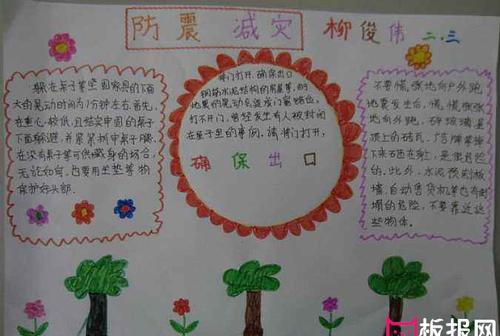 防震 减灾 柳俊伟 二.三
躲在桌子等坚固家具的下面
大的晃动时间约1分钟左右.首先,
在重心较低,且结实牢固的桌子
下面躲避,并紧紧抓牢桌子腿.
在没有桌子等可供藏身的场合,
无论如何,也要用坐垫等物
保护好头部.
将门打开,确保出口
钢筋水泥结构的房屋等,由于
地震的晃动会造成门窗错位,
打不开门,曾经发生有人被封闭
在屋子里的事例.请将门打开,
确保出口
不要慌张地向户外跑
地震发生后,慌慌张张
地向外跑,碎玻璃、屋
顶上的砖瓦、广告牌等掉
下来砸在身上,是很危险
的.此外,水泥预制板
墙、自动售货机等也有倒
塌的危险,不要靠近这
些物体.
板报网